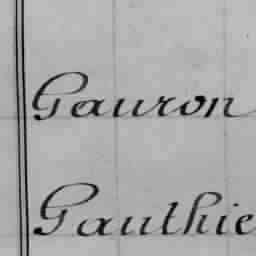 Gauron
Gauthie